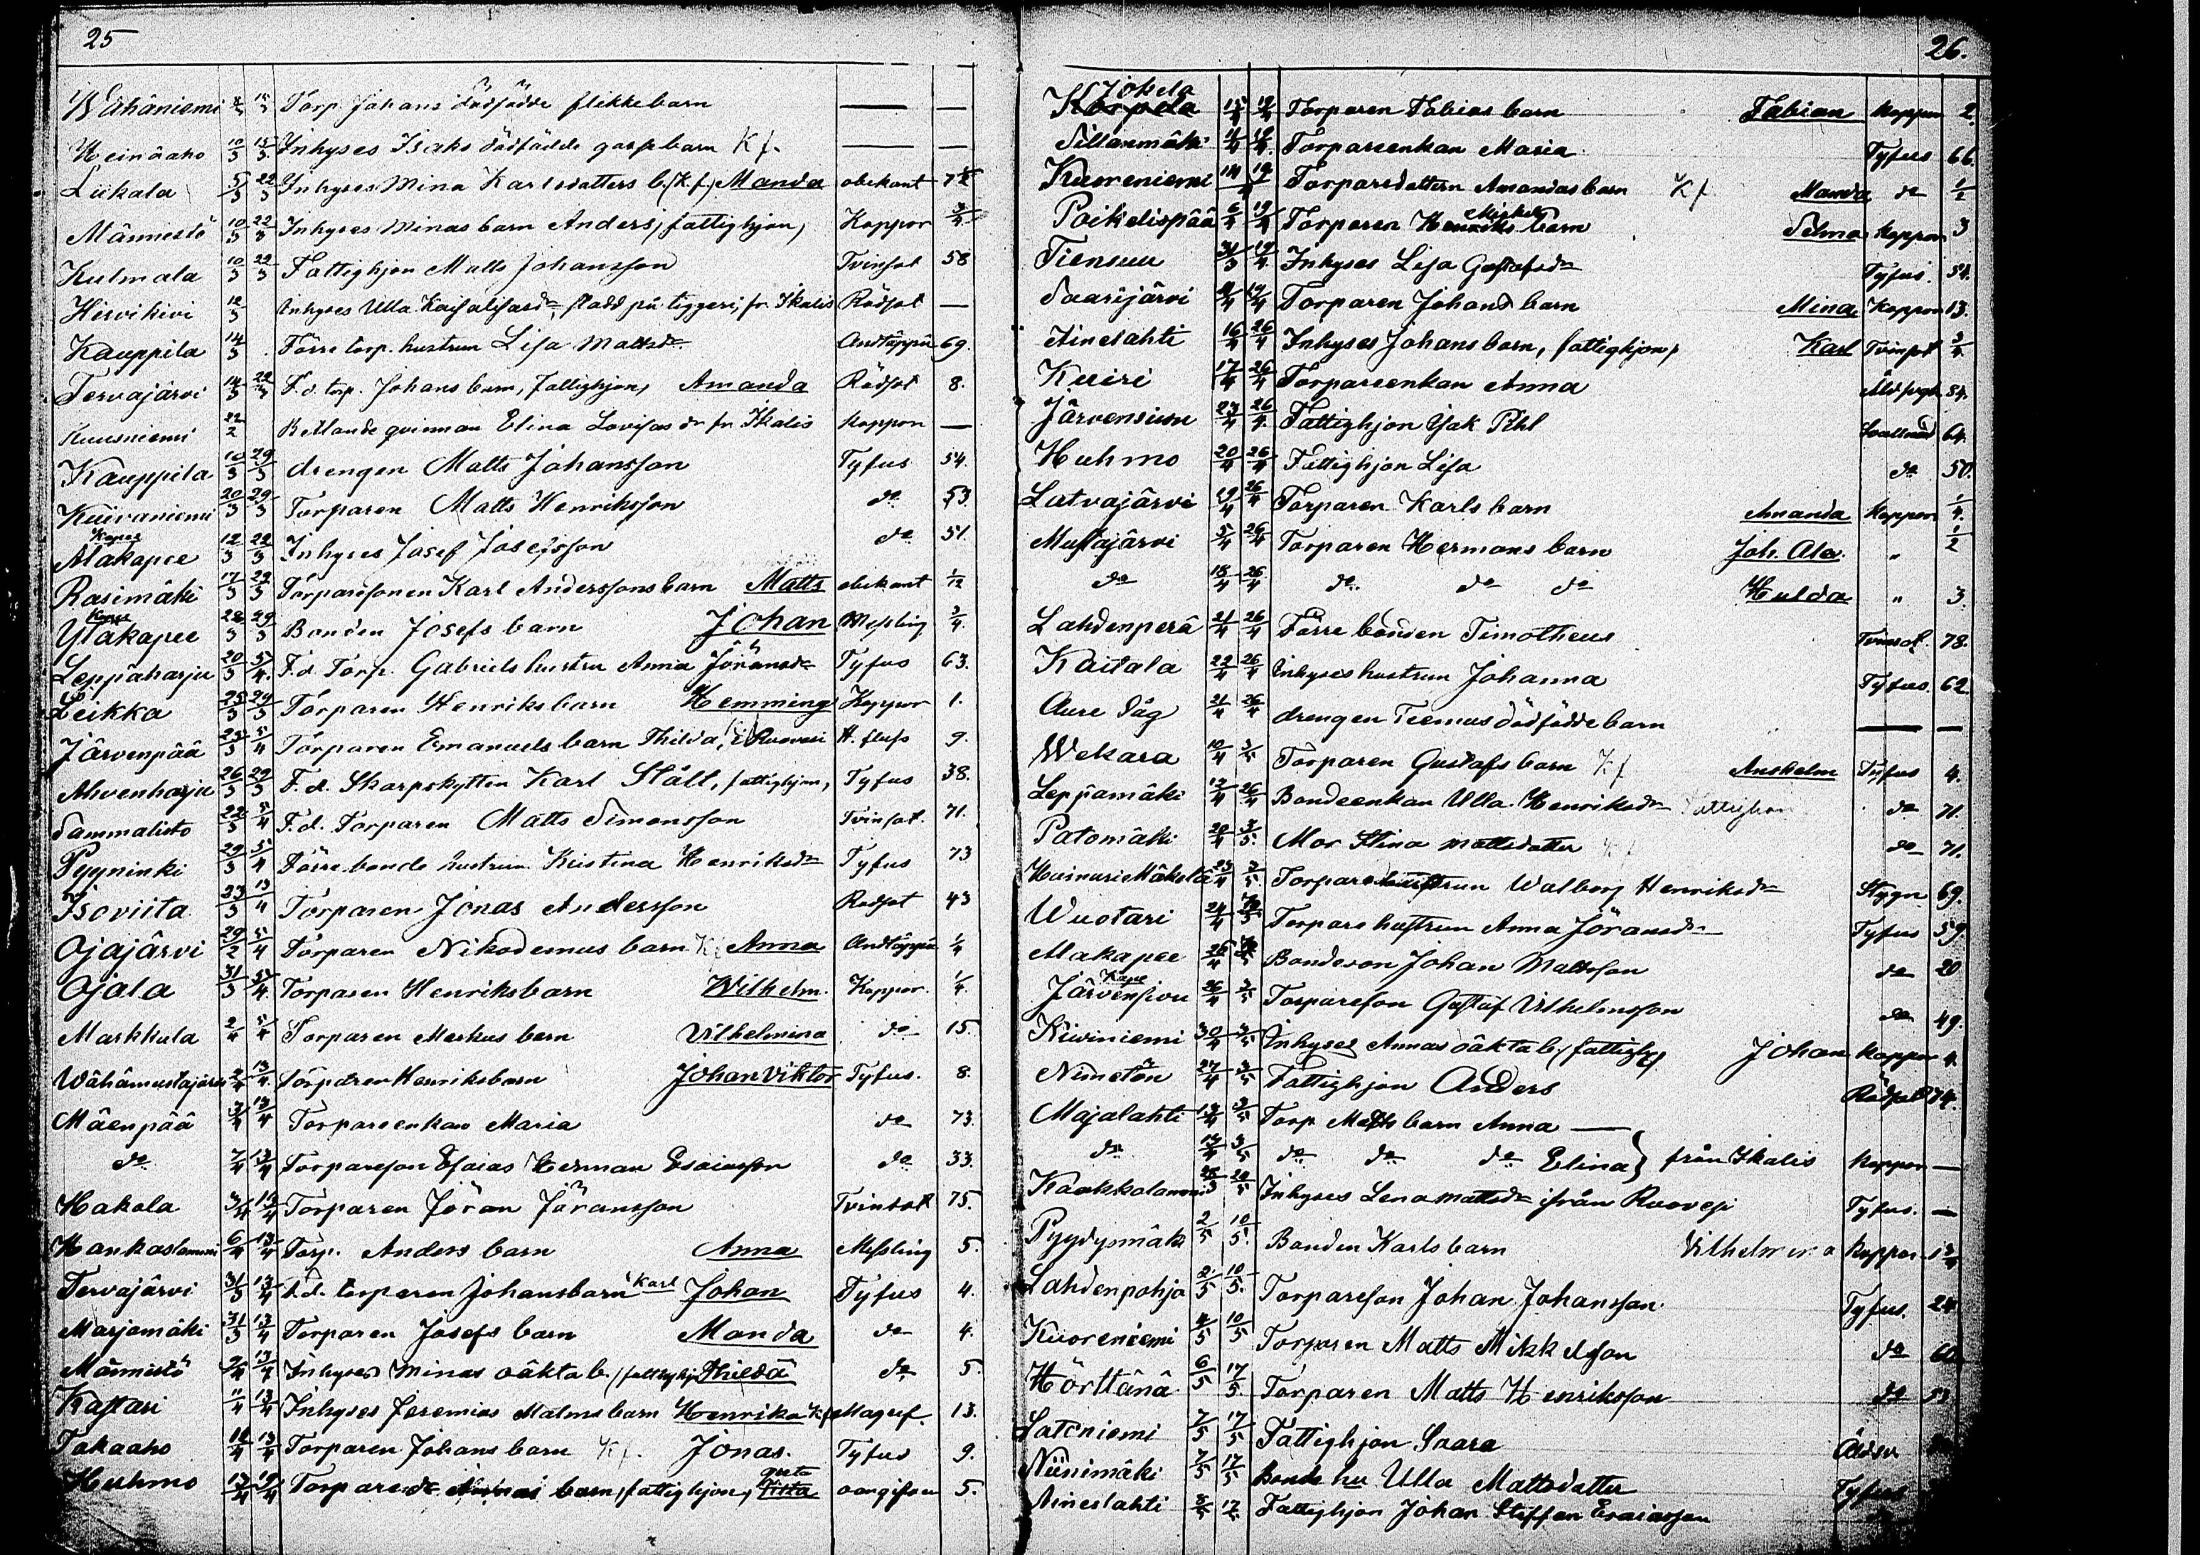 25
Wähäniemi Torp. Johans dödfödde flikkebarn — —
Heinäaho 10/3 15/3 Inhyses Isaks dödfödde gossebarn Kf. — —
Liukala 5/3 22/3 Inhyses Mina Karlsdotters b. (K.f.) Manda obekant
Männistö 10/3 22/3 Inhyses Minas barn Anders, fattighjon, Koppor 3/4
Kulmala 10/3 22/3 Fattighjon Matts Johansson Tvinsot 58
Hirvikivi 12/3 Inhyses Ulla stadd på tiggeri, fr. Ikalis Rödsot —
Kauppila 14/3 Förre torp. hustrun Lisa Mattsdr Andtäppa 69.
Tervajärvi 14/3 22/3 F.d. torp. Johans barn, Fattighjon, Amanda Rödsot 8.
Kuusniemi 22/2 qvinnan Elina Lovisas dr fr. Ikalis Koppor —
Kauppila 10/3 29/3 drengen Matts Johansson Tyfus 54.
Kuivaniemi 20/3 29/3 Torparen Matts Henriksson do 53
Kapee
Alakapee 12/3 22/3 Inhyses Josef Josefsson do 51.
Rasimäki 17/3 29/3 Torparesonen Karl Anderssons barn Matts obekant 1/12
Yläkapee 28/3 29/3 Bonden Josefs barn Johan Messling 3/4.
Leppäharju 20/3 5/4. F.d. Torp. Gabriels hustru Anna Jöransdr Tyfus 63.
Leikka 25/3 29/3 Torparen Henriks barn Hemming Koppor 1.
Järvenpää 25/3 5/4 Torparen Emanuels barn Thilda, i Ruovesi 9.
Ahvenharju 26/3 29/3 F.d. Skarpskytten Karl Ståll, fattighjon, Tyfus 38.
Sammalisto 22/3 5/4 F.d. Torparen Matts Simonsson Tvinsot. 71.
Pyyninki 29/3 5/4 Förre bonde hustrun Kristina Henriksdr Tyfus 73
Isoviita 23/3 13/4 Torparen Jonas Andersson Rödsot 43
Ojajärvi 29/2 5/4 Torparen Nikodemus barn Kf Anna Andtäppa 1/4
Ojala 31/3 5/4. Torparen Henriks barn Wilhelm. Koppor. 1/4.
Markkula 2/4 5/4 Torparen Markus barn Vilhelmina do 15.
Wähämustajärvi 2/4 13/4. Torparen Henriks barn Johan Viktor Tyfus. 8.
Mäenpää 3/4 13/4 Torpareenkan Maria do 73.
do 7/4 13/4 Torpareson Esaias Herman Esaiasson do 33.
Hakola 3/4 13/4 Torparen Jöran Jöransson Tvinsot 75.
Hankaslammi 6/4 13/4 Torp. Anders barn Anna Messling 5.
Tervajärvi 31/3 13/4 F.d. torparen Johans barn Karl Johan Tyfus 4.
Marjamäki 31/3 13/4 Torparen Josefs barn Manda do 4.
Männistö 13/4 Inhyses Minas oäkta b. (fattighj) Thilda do 5.
Kastari 11/4 13/4 Inhyses Jeremias Malms barn Henrika Kf Magref. 13.
Takaaho 12/4 13/4 Torparen Johans barn Kf. Jonas. Tyfus 9.
gusta
Huhmo 13/4 19/4 Torparedr barn, fattighjon, oangifven 5.
26.
Jokela
Korpela 15/4 19/4 Torparen Tobias barn Fabian Koppor 2.
Sillanmäki 11/4 19/4 Torpareenkan Maria Tyfus 66.
Kuoreniemi 14/4 19/4 Torparedottern Amandas barn Kf Manda do 1/2
Mickels
Poikelispää 6/4 19/4 Torparen Henriks barn Selma Koppor 3
Tiensuu 31/3 19/4. Inhyses Lisa Gustafsdr Tyfus. 54.
Saarijärvi 19/4 Torparen Johans barn Mina Koppor 13.
Ainelahti 16/4 26/4 Inhyses Johans barn, fattighjon, Karl Tvinsot 3/4.
Kuiri 17/4 26/4 Torpareenkan Anna 84.
Järvensivu 23/4 26/4. Fattighjon Isak Pihl 64.
Huhmo 20/4 26/4 Fattighjon Lisa do 50.
Latvajärvi 19/4 26/4 Torparen Karls barn Amanda Koppor 1/4.
Mustajärvi 5/4 26/4 Torparen Hermans barn Joh. Ala. " 1/2
do 18/4 26/4 do do do Hulda " 3.
Lahdenperä 21/4 26/4 Förre bonden Timotheus Tvinsot. 78.
Kaitala 22/4 26/4 Inhyseshustrun Johanna Tyfus. 62
Aure Såg 21/4 26/4 drengen Teemus dödfödde barn — —
Wekara 10/4 3/5 Torparen Gustafs barn Kf Anshelm Tyfus 4.
Leppämäki 13/4 26/4 Bondeenkan Ulla Henriksdr Fattighjon do 71.
Patomäki 20/4 3/5. Mor Stina Mattsdotter Kf do 71.
23/4 3/5 Torparehustrun Walborg Henriksdr Stygn 69.
Wuotari 24/4 Torparehustrun Anna Jöransdr Tyfus 59.
Alakapee 26/4 Bondeson Johan Mattsson do 20
Kape
Järvensivu 26/4 3/5 Torpareson Gustaf Vilhelmsson do 49.
Kiviniemi 30/4 3/5 Inhyses Annas oäkta b. (fattighj) Johan Koppor 4.
Nimetön 27/4 3/5 Fattighjon Anders Rödsot 74.
Majalahti 13/4 3/5 Torp Matts barn Anna —
do 13/4 3/5 do do do Elina } från Ikalis Koppor —
Inhyses Lena Mattsdr ifrån Ruovesi Tyfus. —
Pyydysmäki 2/5 10/5. Bonden Karls barn Vilhelmina Koppor 1 3/4
Lahdenpohja 2/5 10/5. Torpareson Johan Johansson. Tyfus. 24
Kuoreniemi 4/5 10/5 Torparen Matts Mikkelsson do 60
Hörttänä 6/5 17/5. Torparen Matts Henriksson do 53
Satoniemi 7/5 17/5 Fattighjon Saara
Niinimäki 7/5 17/5 Bonde hu Ulla Mattsdotter Tyfus
Aineslahti Fattighjon Johan Steffan Esaiasson